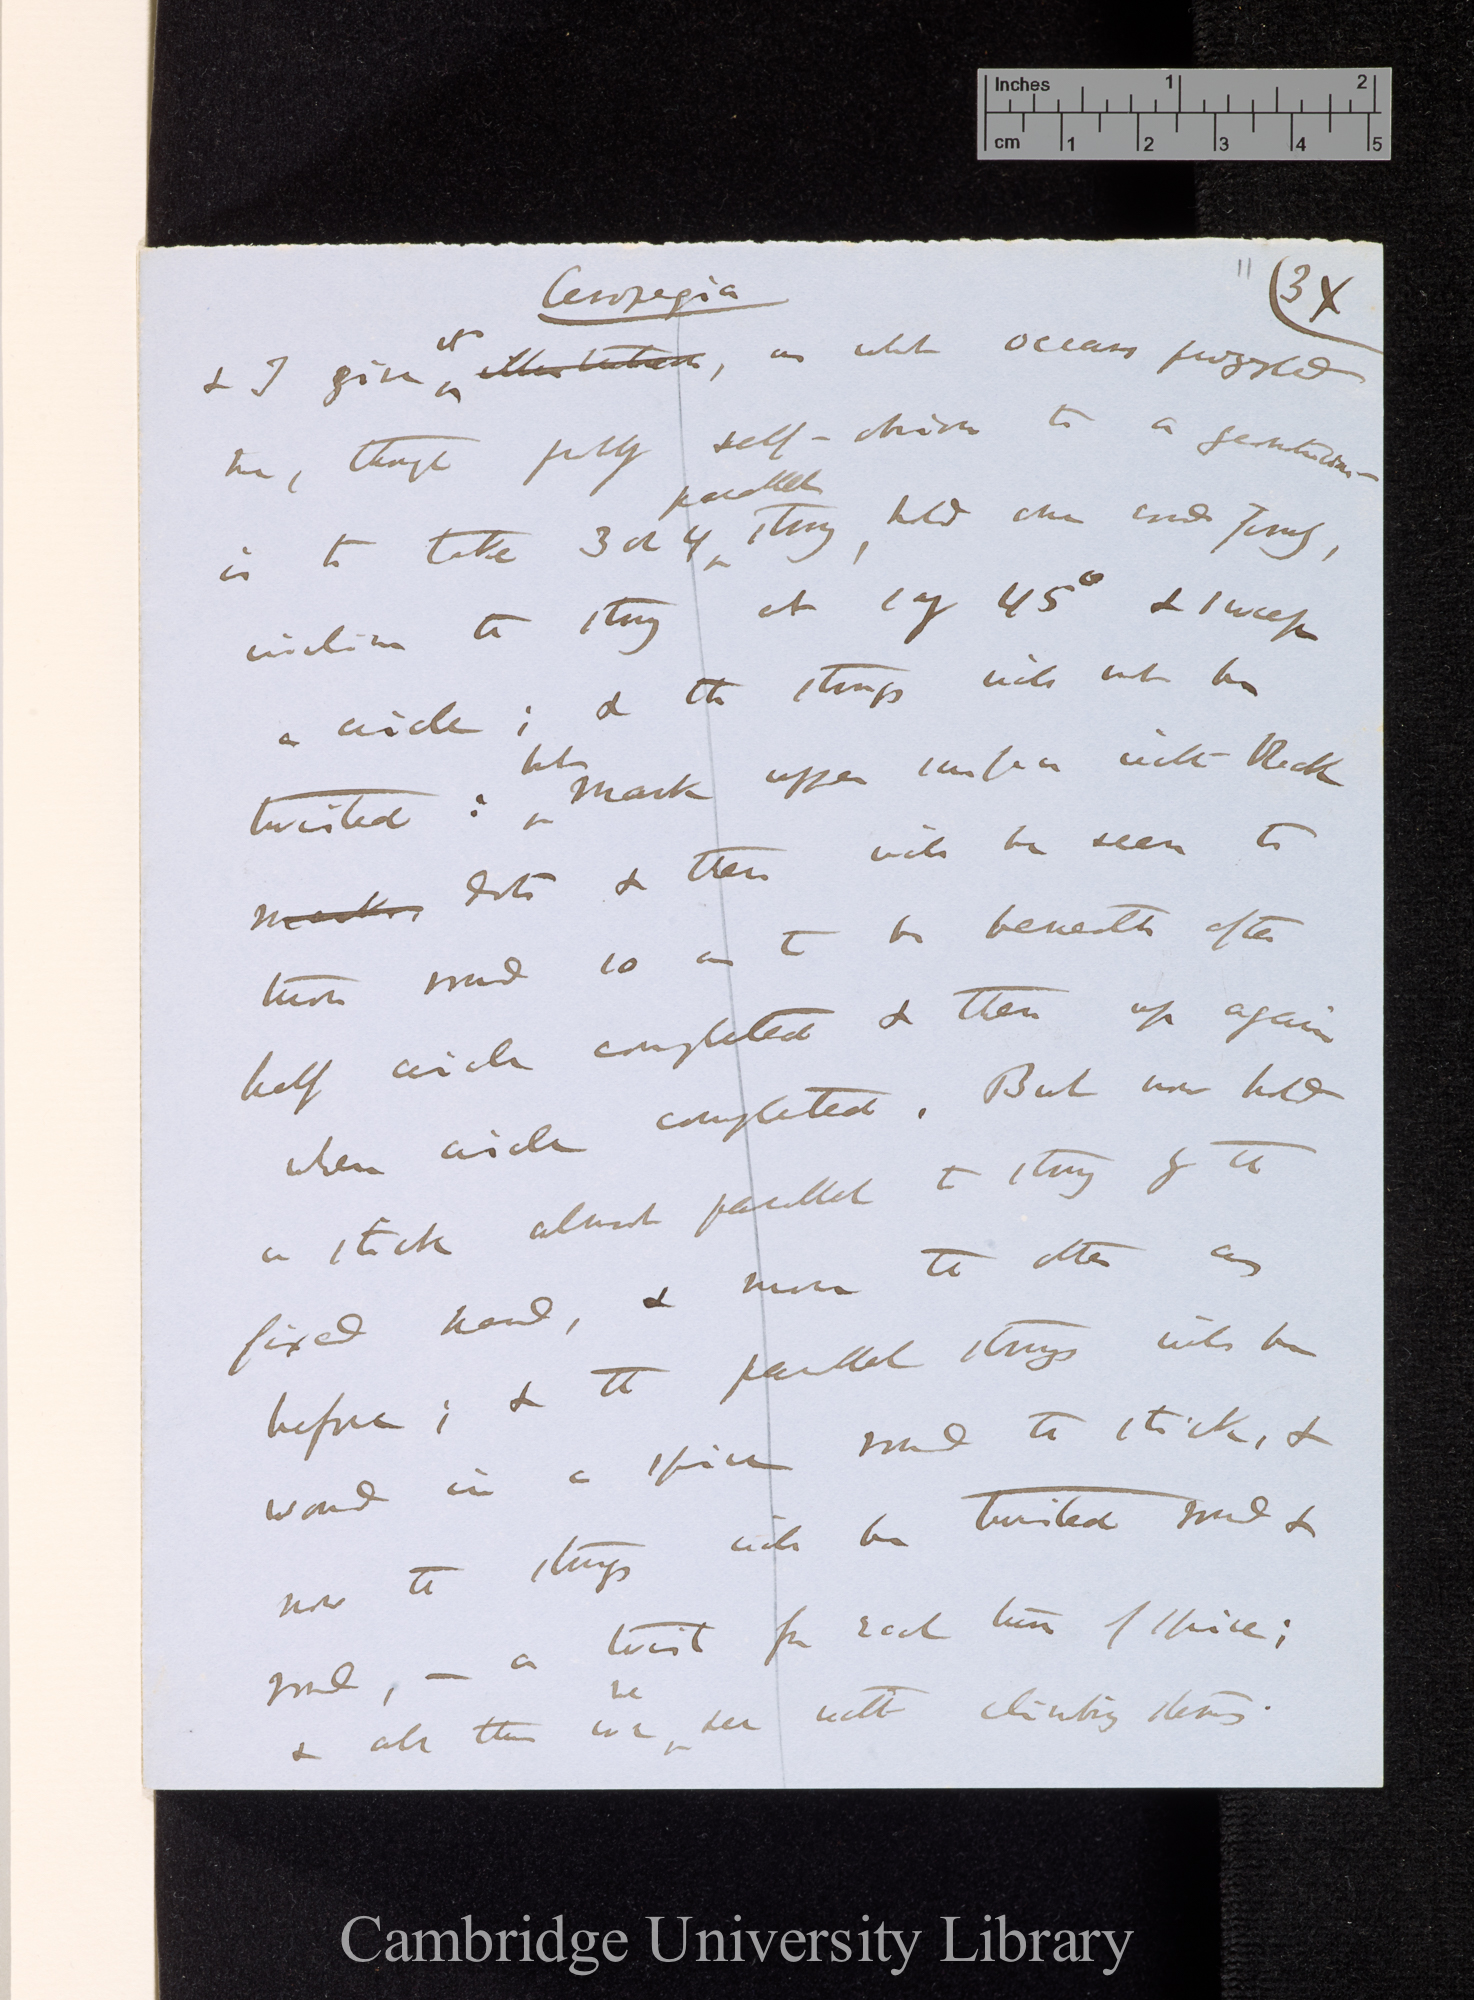 Inches 1 2
cm 1 2 3 4 5
Ceropegia
(3 X
& I give it illustration, as what occurs puzzled
me, though fully self-obvious to a geometrician
is to take 3 or 4 parallel string, hold one end firmly,
incline the string at say 45° & sweep
a circle; & the strings will not be
twisted: but mark upper surface with black
marks dots & these will be seen to
turn round so as to be beneath after
half circle completed & then up again
when circle completed. But now hold
a stick almost parallel to string of the
fixed hand, & move the other as
before; & the parallel strings will be
wound in a spire round the stick, &
now the strings will be twisted round &
round, — a twist for each turn of spire;
& all this we see with climbing stems.
Cambridge University Library